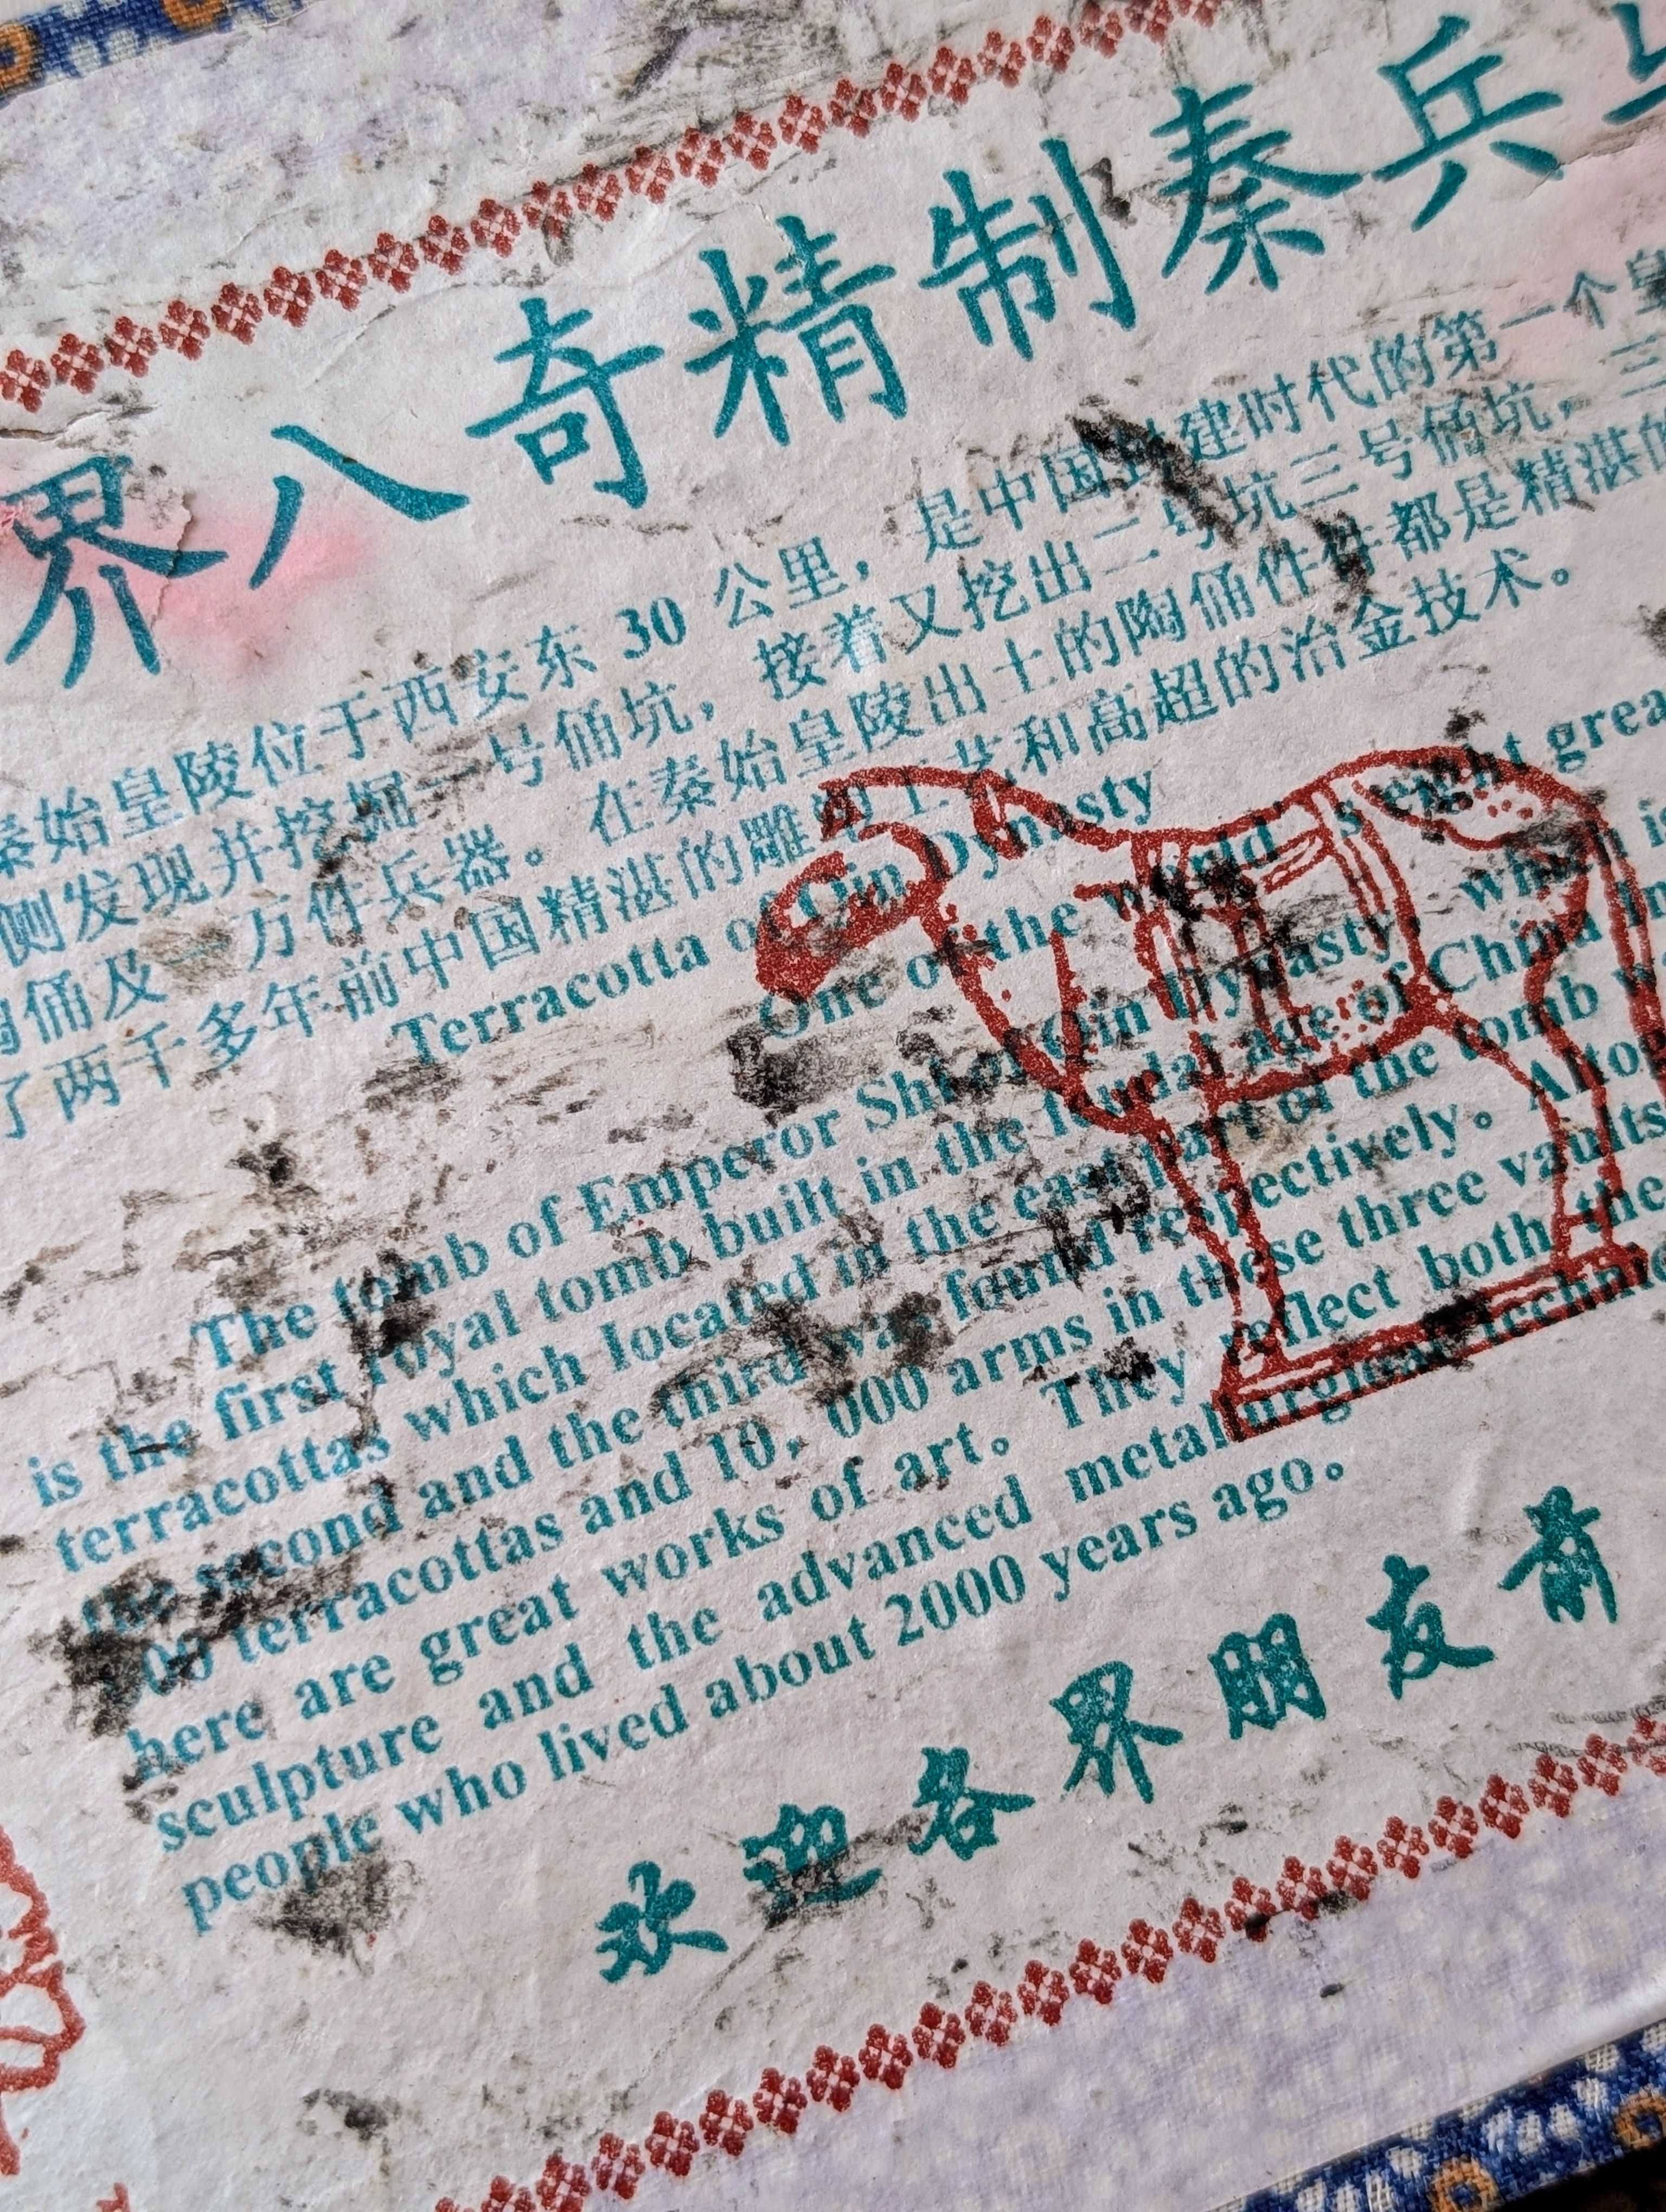 界八奇精制秦兵
秦始皇陵位于西安东 30 公里，是中国封建时代的第一个皇
侧发现并挖掘一号俑坑，接着又挖出二号坑三号俑坑，三
陶俑及一万件兵器。在秦始皇陵出土的陶俑件件都是精湛的
了两千多年前中国精湛的雕塑工艺和高超的冶金技术。
Terracotta of Qin Dynasty
One of the world's eight grea
The tomb of Emperor Shi of Qin Dynasty which is
is the first royal tomb built in the feudal age of China
terracottas which located in the east part of the tomb wa
the second and the third was found respectively。 Altog
00 terracottas and 10，000 arms in these three vaults
here are great works of art。 They reflect both the
sculpture and the advanced metallurgical techni
people who lived about 2000 years ago。
欢迎各界朋友前